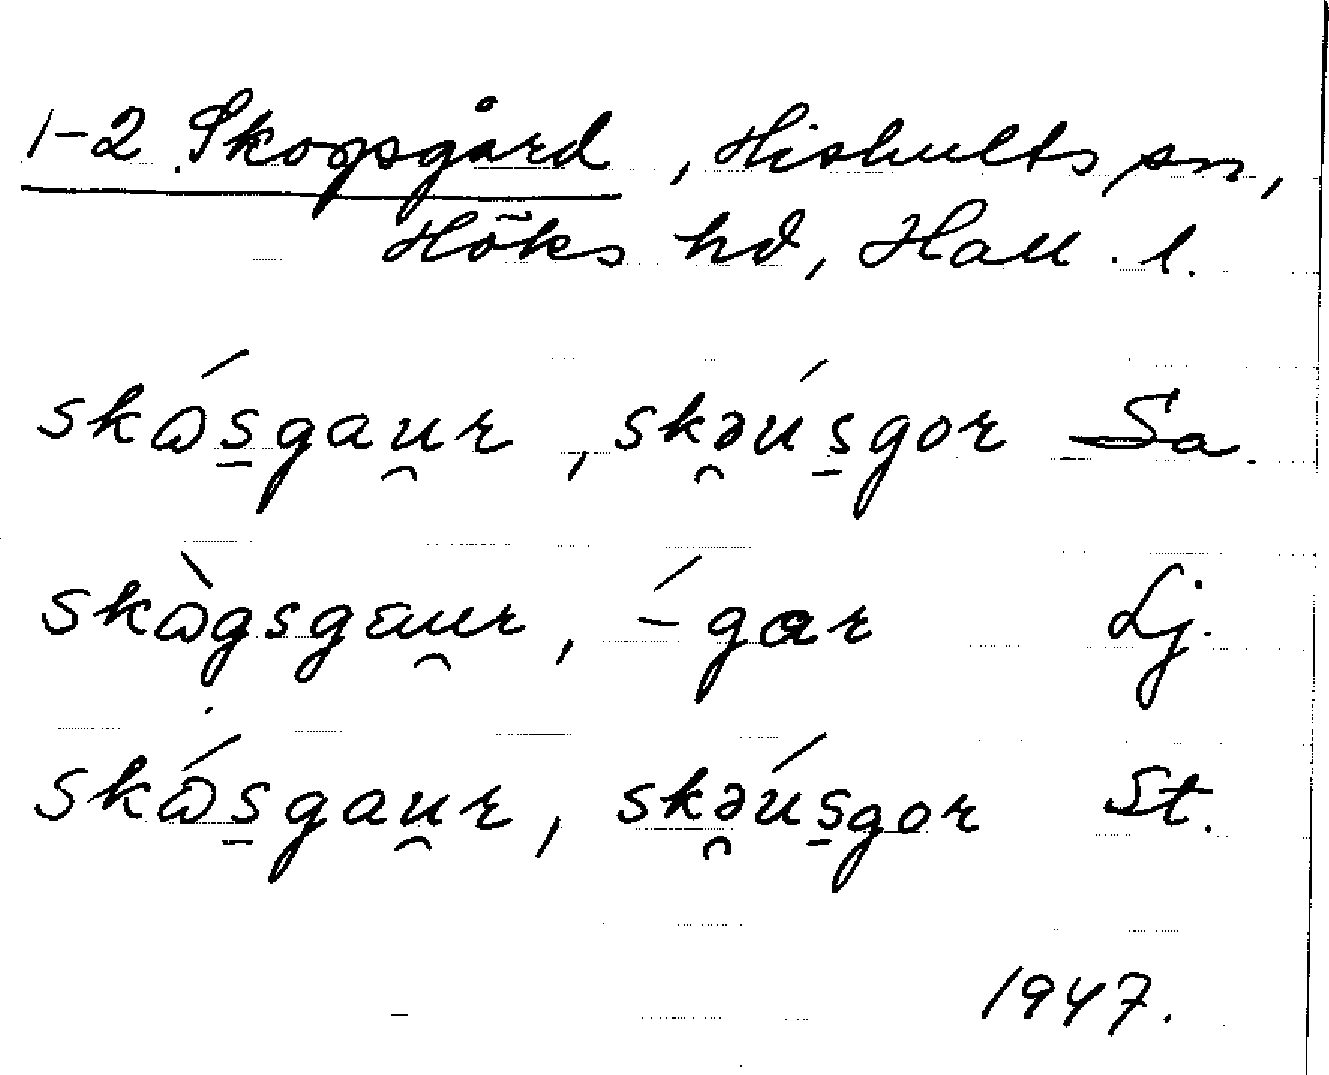 1-2 Skogsgård, Hishults sn,
Höks hd, Hall. l.
skɷ́s̠gau̯r, skə̯ús̠gor Sa.
skɷ̀gsgau̯r, -́gar Lj.
skɷ́s̠gau̯r, skə̯ús̠gor St.
1947.